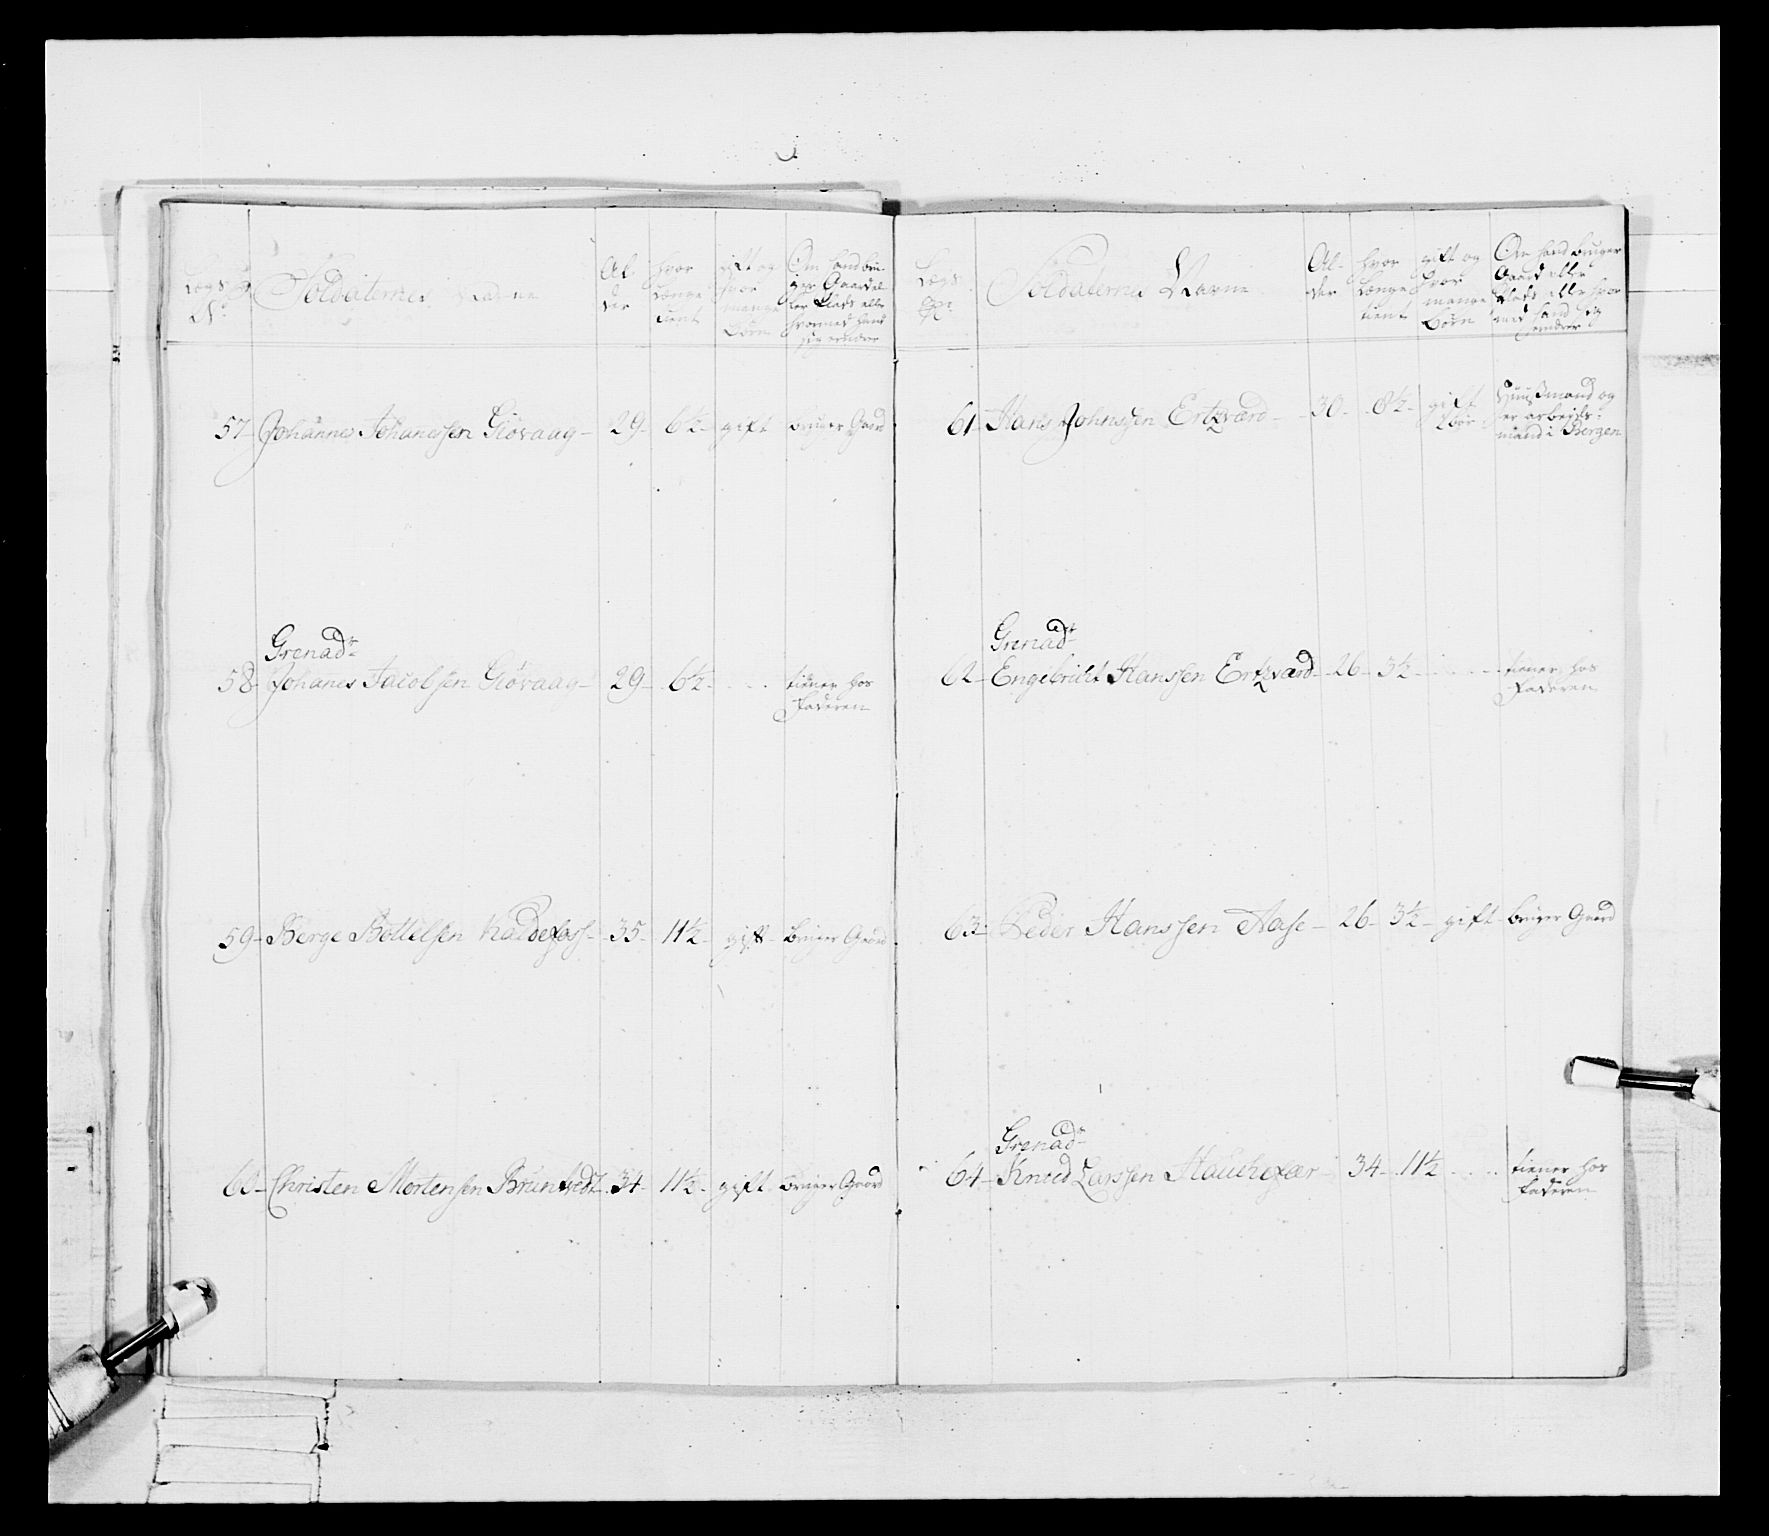 Lægs No Soldaternes Navne Al der hvor længe tient gift og hvor mange Børn Om hand bru- ger Gaard el ler Plads eller hvormed hand sig ernærer
57 - Johannes Johanessen Giøvaag - 29 - 6½ - gift bruger Gaard
Grenadr
58 - Johanes Jacobsen Giøvaag - 29 - 6½ - tiener hos
Faderen
59 - Berge Bottelsen Kaldefoss - 35 - 11½ - gift - bruger Gaard
60 - Christen Mortensen Bruntvedt - 34 - 11½ - gift bruger Gaard
Lægs No Soldaternes Navne Al- der hvor længe tient gift og hvor mange Børn Om hand bruger Gaard eller Plads eller hvor med hand sig ernærer
61 - Hans Johnssen Ertzværd - 30 - 8½ - gift 2 bør Huusmand og
er arbejds-
mand i Bergen
Grenadr
62 - Engebricht Hanssen Ertzværd - 26 - 3½ - tiener hos
Faderen
63 - Peder Hanssen Aase - 26 - 3½ - gift - bruger Gaard
Grenadr
64 - Knud Larssen - 34 - 11½ tiener hos
Faderen